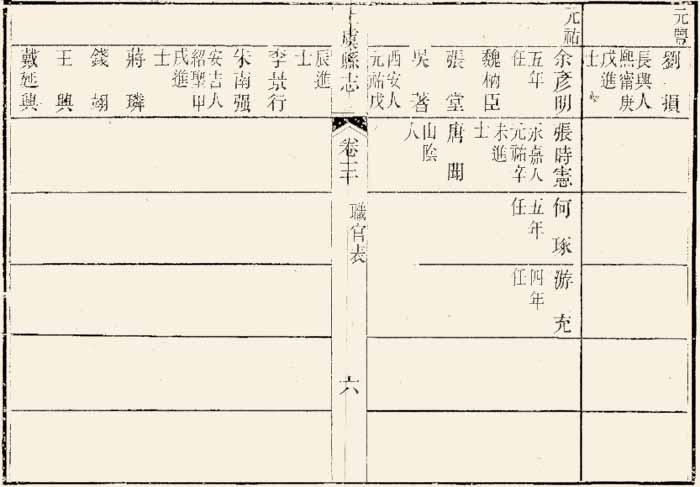 元豐
劉損
長興人
熙甯庚
戌進
士
元祐
余彥明
五年
任
魏柄臣
張堂
吳著
西安人
元祐戊
張時憲
永嘉人
元祐辛
未進
士
唐閱
山陰
人
何琢
五年
任
游充
四年
任
上虞縣志
卷三十
職官表
六
辰進
士
李景行
朱南强
安吉人
紹聖甲
戌進
士
蔣璘
錢翊
王興
戴延興